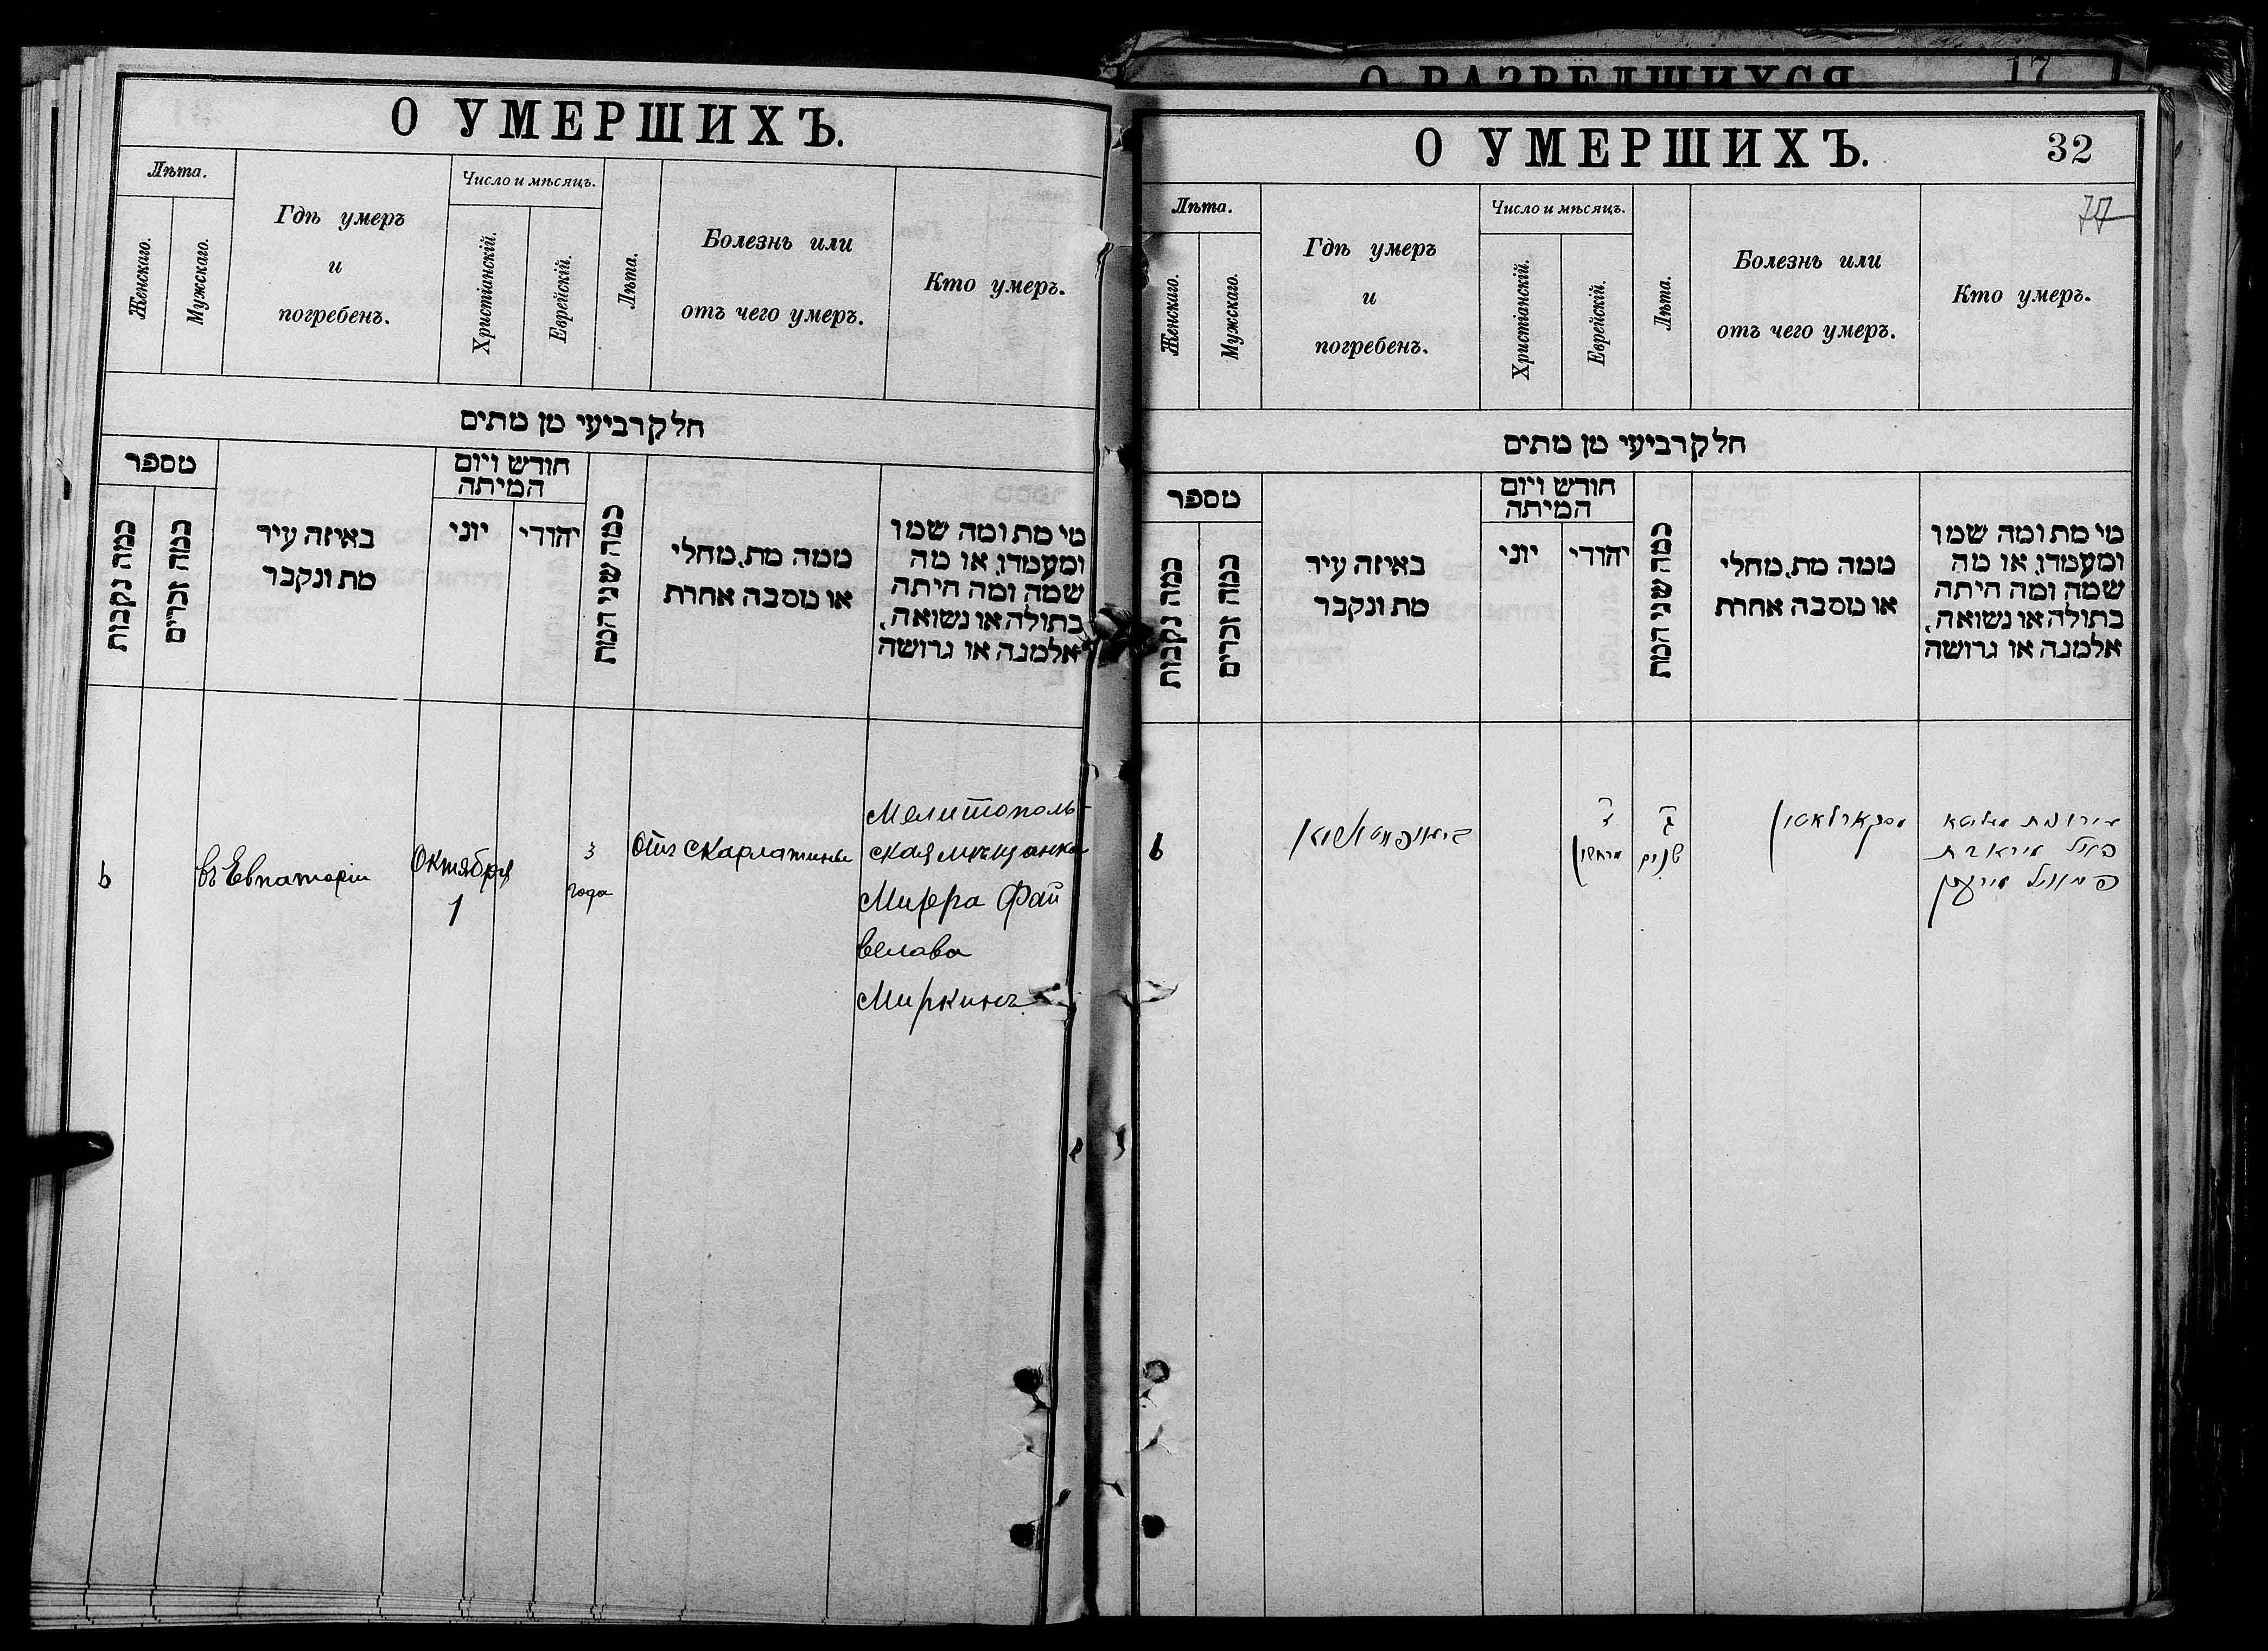 О УМЕРШИХЪ.
Лѣта.
Женскаго.
Мужскаго.
Гдѣ умеръ
и
погребенъ.
Число и мѣсяцъ.
Христіанскій.
Еврейскій.
Лѣта.
Болезнь или
отъ чего умеръ.
Кто умеръ.
חלק רביעי מן מתים
מספר
כמה נקבות
כמה זכרים
באיזה עיר
מת ונקבר
חודש ויום
המיתה
יוני
יהודי
כמה שני המת
ממה מת, מחלי
או מסבה אחרת
מי מת ומה שמו
ומעמדו, או מה
שמה ומה היתה
בתולה או נשואה,
אלמנה או גרושה
6
въ Евпаторіи
Октября
1
3
года
отъ скарлатины
Мелитополь-
ская мѣщанка
Мирра Фай
велова
Миркинъ
О РАЗВЕДШИХСЯ
17
О УМЕРШИХЪ.
32
77
Лѣта.
Женскаго.
Мужскаго.
Гдѣ умеръ
и
погребенъ.
Число и мѣсяцъ.
Христіанскій.
Еврейскій.
Лѣта.
Болезнь или
отъ чего умеръ.
Кто умеръ.
חלק רביעי מן מתים
מספר
כמה נקבות
כמה זכרים
באיזה עיר
מת ונקבר
חודש ויום
המיתה
יוני
יהודי
כמה שני המת
ממה מת, מחלי
או מסבה אחרת
מי מת ומה שמו
ומעמדו, או מה
שמה ומה היתה
בתולה או נשואה,
אלמנה או גרושה
6
מרחשון
ג
שנים